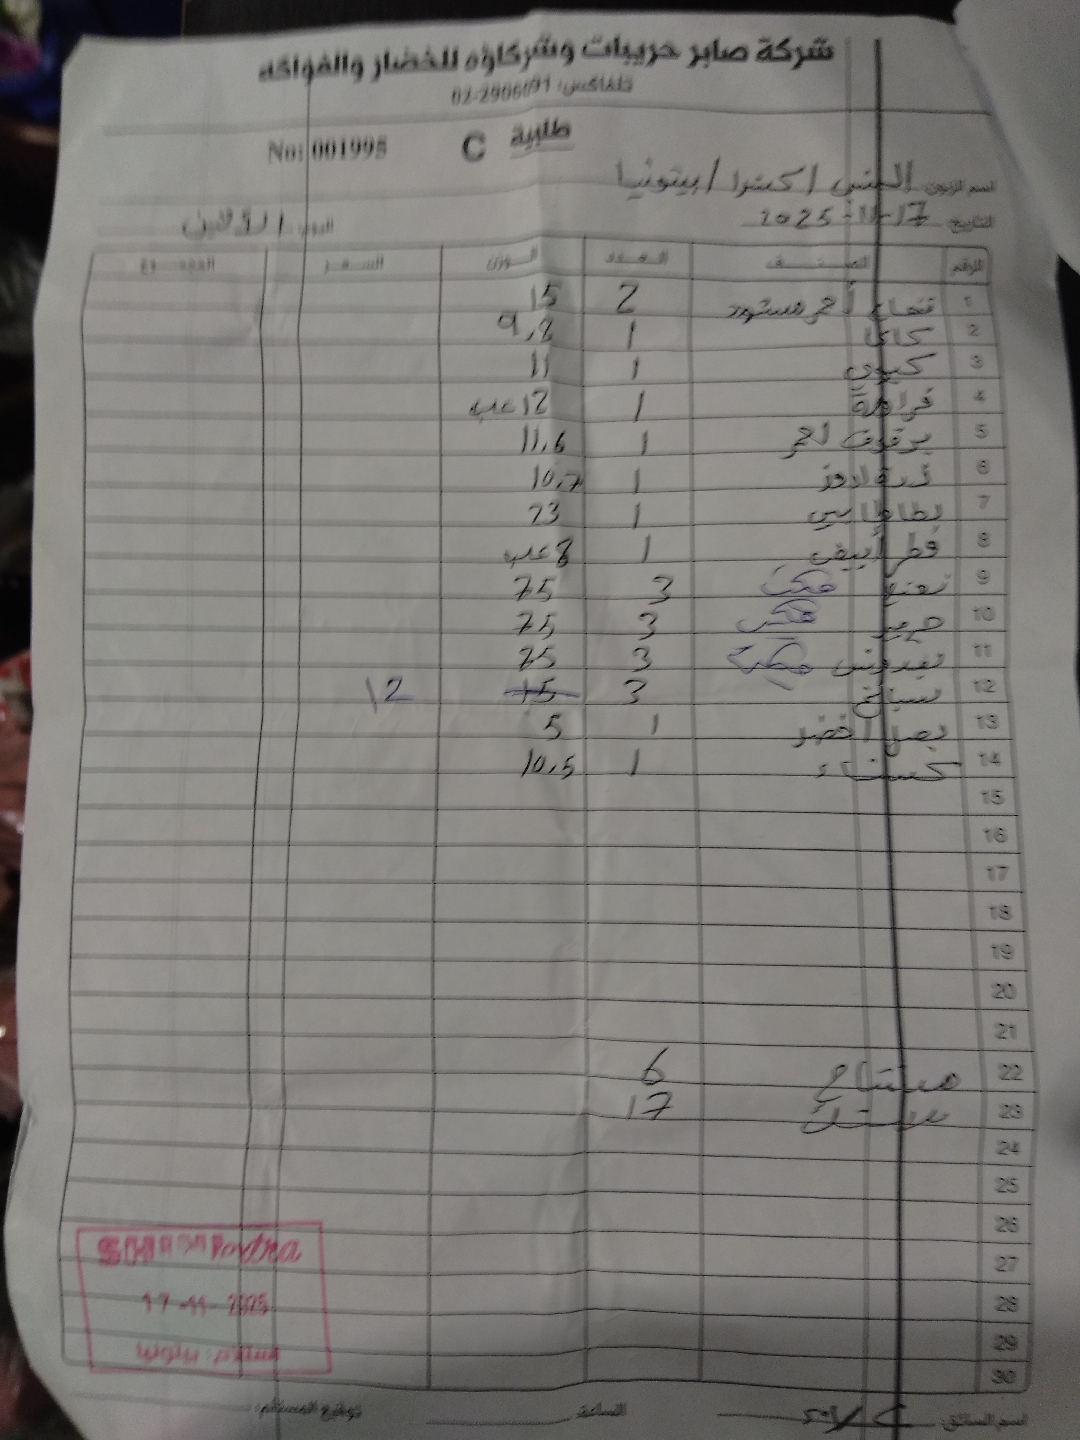 شركة صابر حريبات وشركاؤه للخضار والفواكه
تلفاكس: 02-2906091
طلبية C No: 001995
اسم الزبون: الشني / اكسترا / بيتونيا
التاريخ: 17-11-2025 اليوم: الاثنين
الرقم الصنف العدد الوزن السعر المجموع
1 تفاح أحمر مستورد 2 15
2 كاكا 1 9,8
3 كيوي 1 11
4 فراولة 1 12 علب
5 برقوق احمر 1 11,6
6 1 10,7
7 بطاطا بيبي 1 23
8 فطر أبيض 1 8 علب
9 نعنع 3 75
10 جرجير 3 75
11 بقدونس 3 75
12 سبانخ 3 15 12
13 بصل اخضر 1 5
14 كستناء 1 10,5
15
16
17
18
19
20
21
22 مشتاح 6
23 17
24
25
26
27
28
29
30
Extra
17-11-2025
مستلم: بيتونيا
اسم السائق: الساعة: توقيع المستلم: